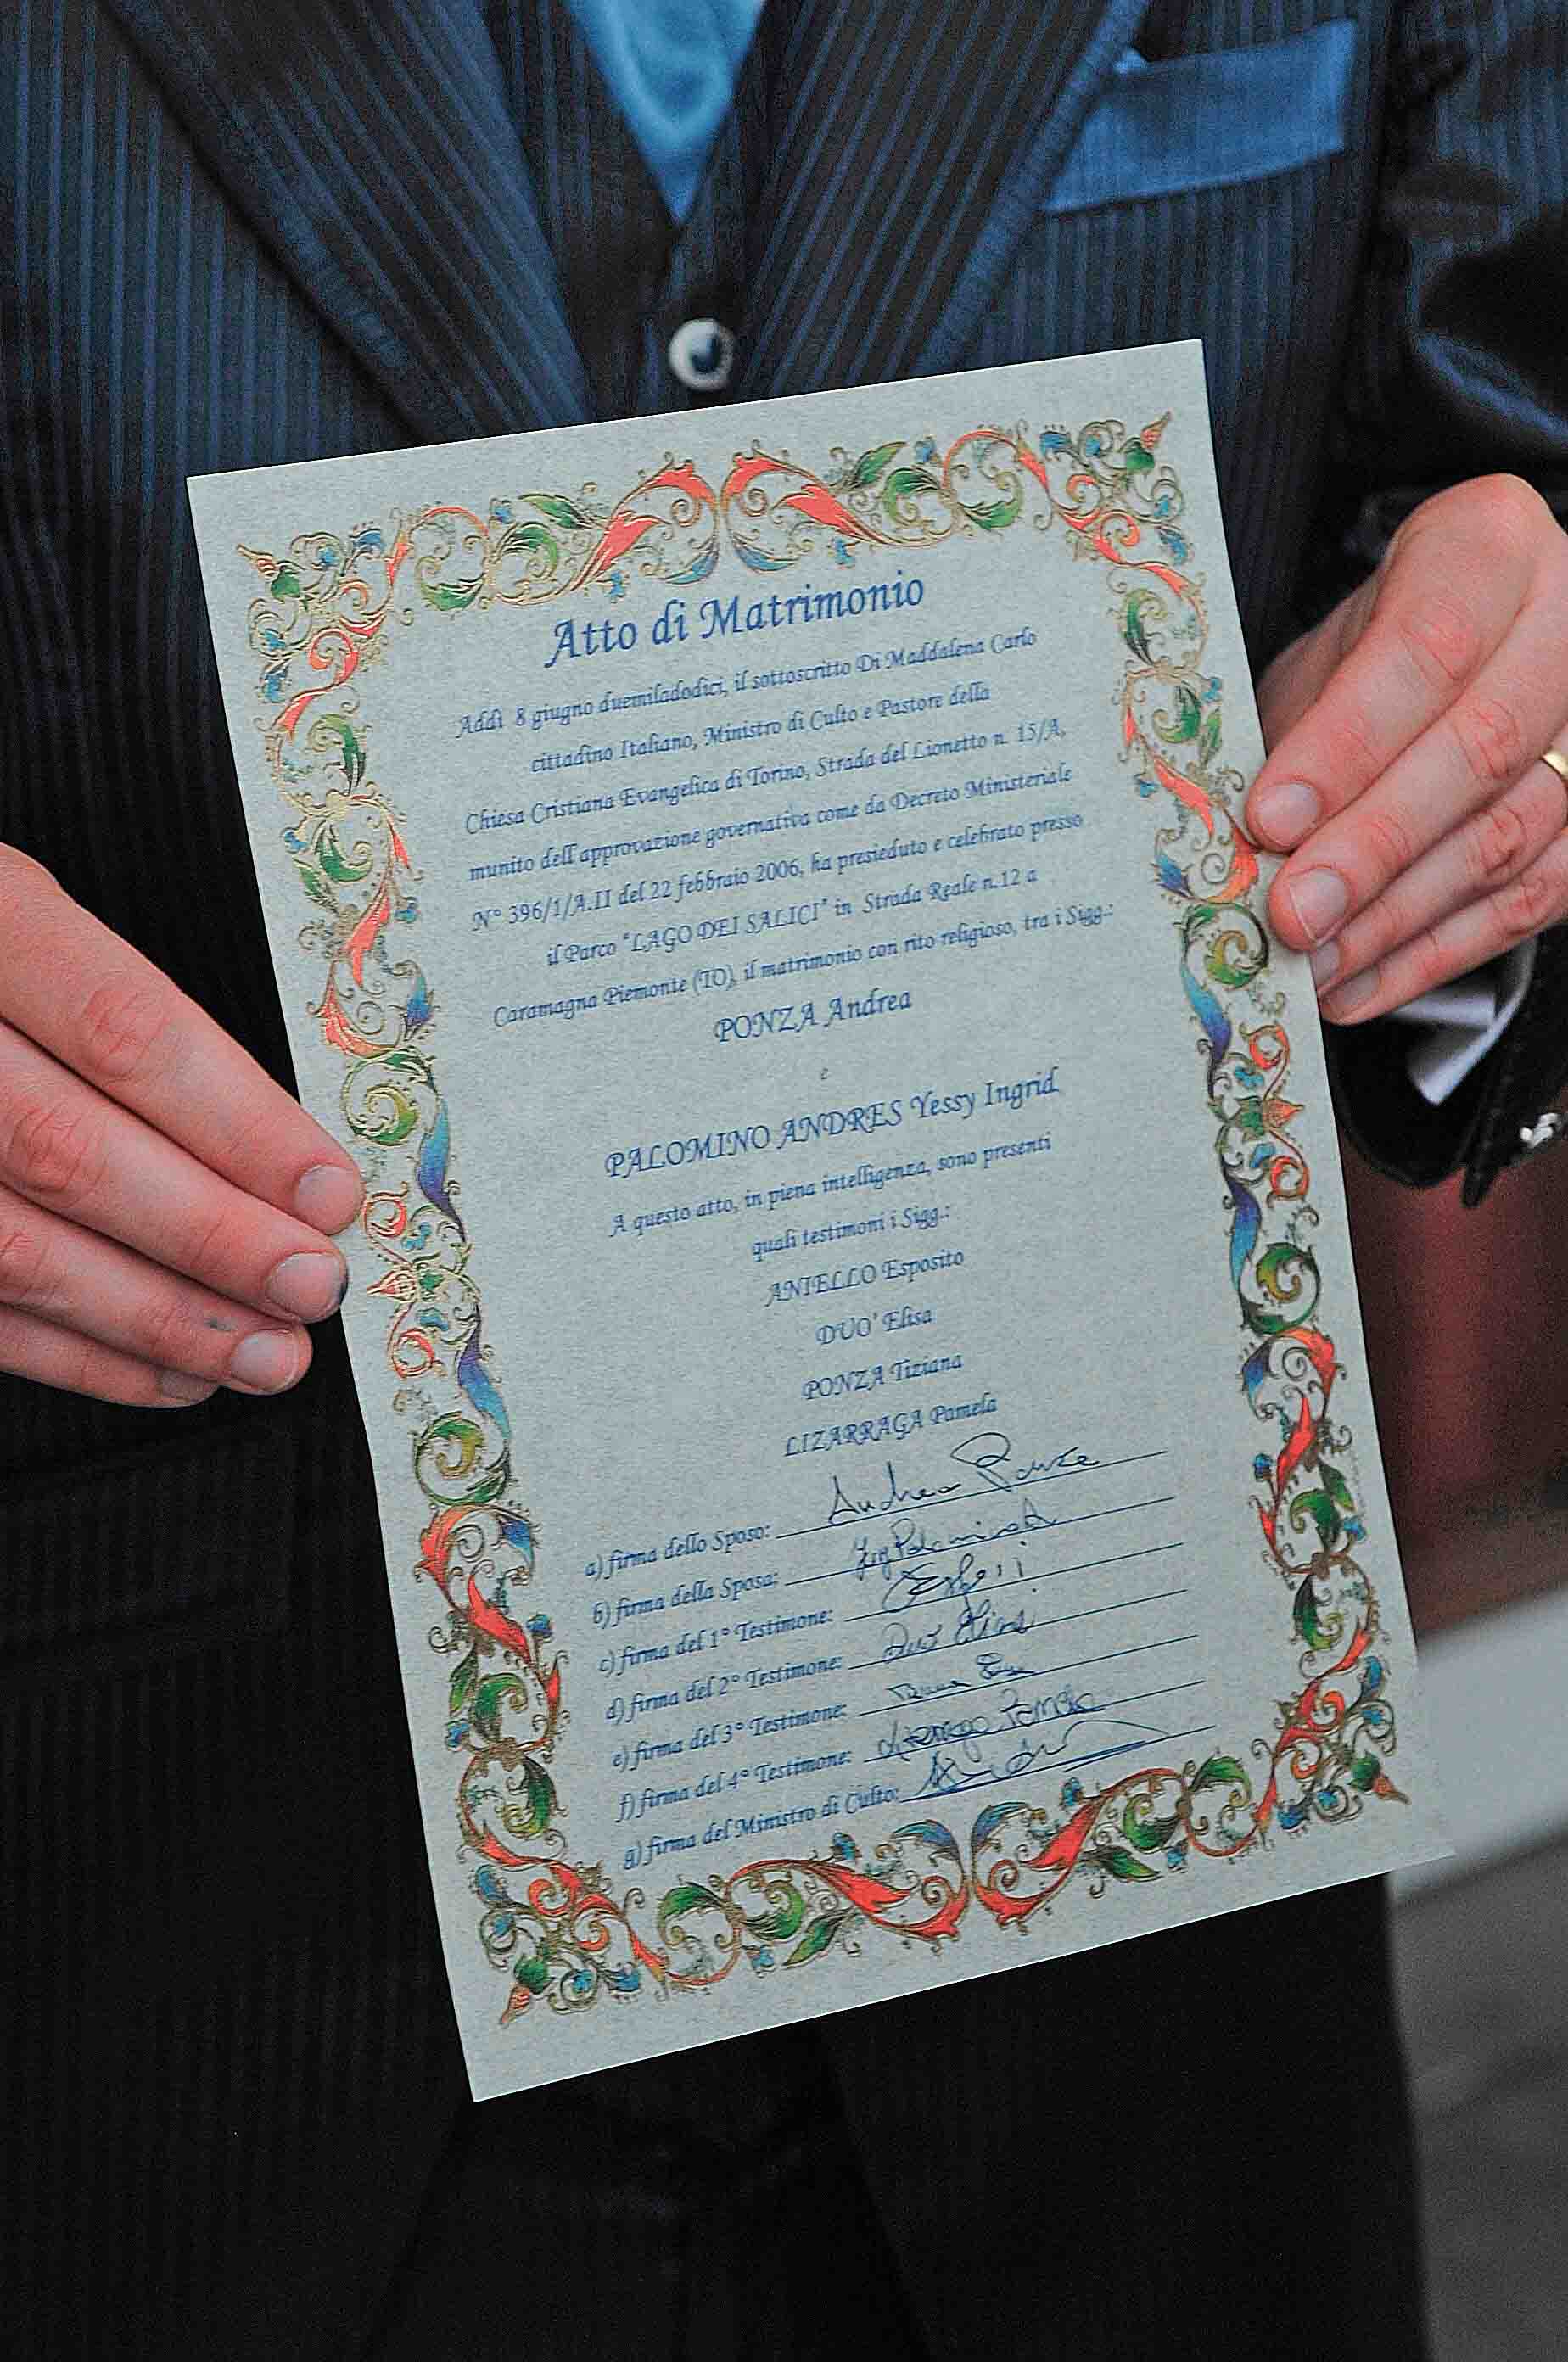 Atto di Matrimonio
Addì 8 giugno duemiladodici, il sottoscritto Di Maddalena Carlo
cittadino Italiano, Ministro di Culto e Pastore della
Chiesa Cristiana Evangelica di Torino, Strada del Lionetto n. 15/A,
munito dell'approvazione governativa come da Decreto Ministeriale
N° 396/1/A.II del 22 febbraio 2006, ha presieduto e celebrato presso
il Parco "LAGO DEI SALICI" in Strada Reale n.12 a
Caramagna Piemonte (TO), il matrimonio con rito religioso, tra i Sigg.:
PONZA Andrea
e
PALOMINO ANDRES Yessy Ingrid
A questo atto, in piena intelligenza, sono presenti
quali testimoni i Sigg.:
ANIELLO Esposito
DUO' Elisa
PONZA Tiziana
LIZARRAGA Pamela
a) firma dello Sposo: Andrea Ponza
b) firma della Sposa: Palomino
c) firma del 1° Testimone:
d) firma del 2° Testimone: Duò Elisa
e) firma del 3° Testimone:
f) firma del 4° Testimone: Lizarraga Pamela
g) firma del Ministro di Culto: